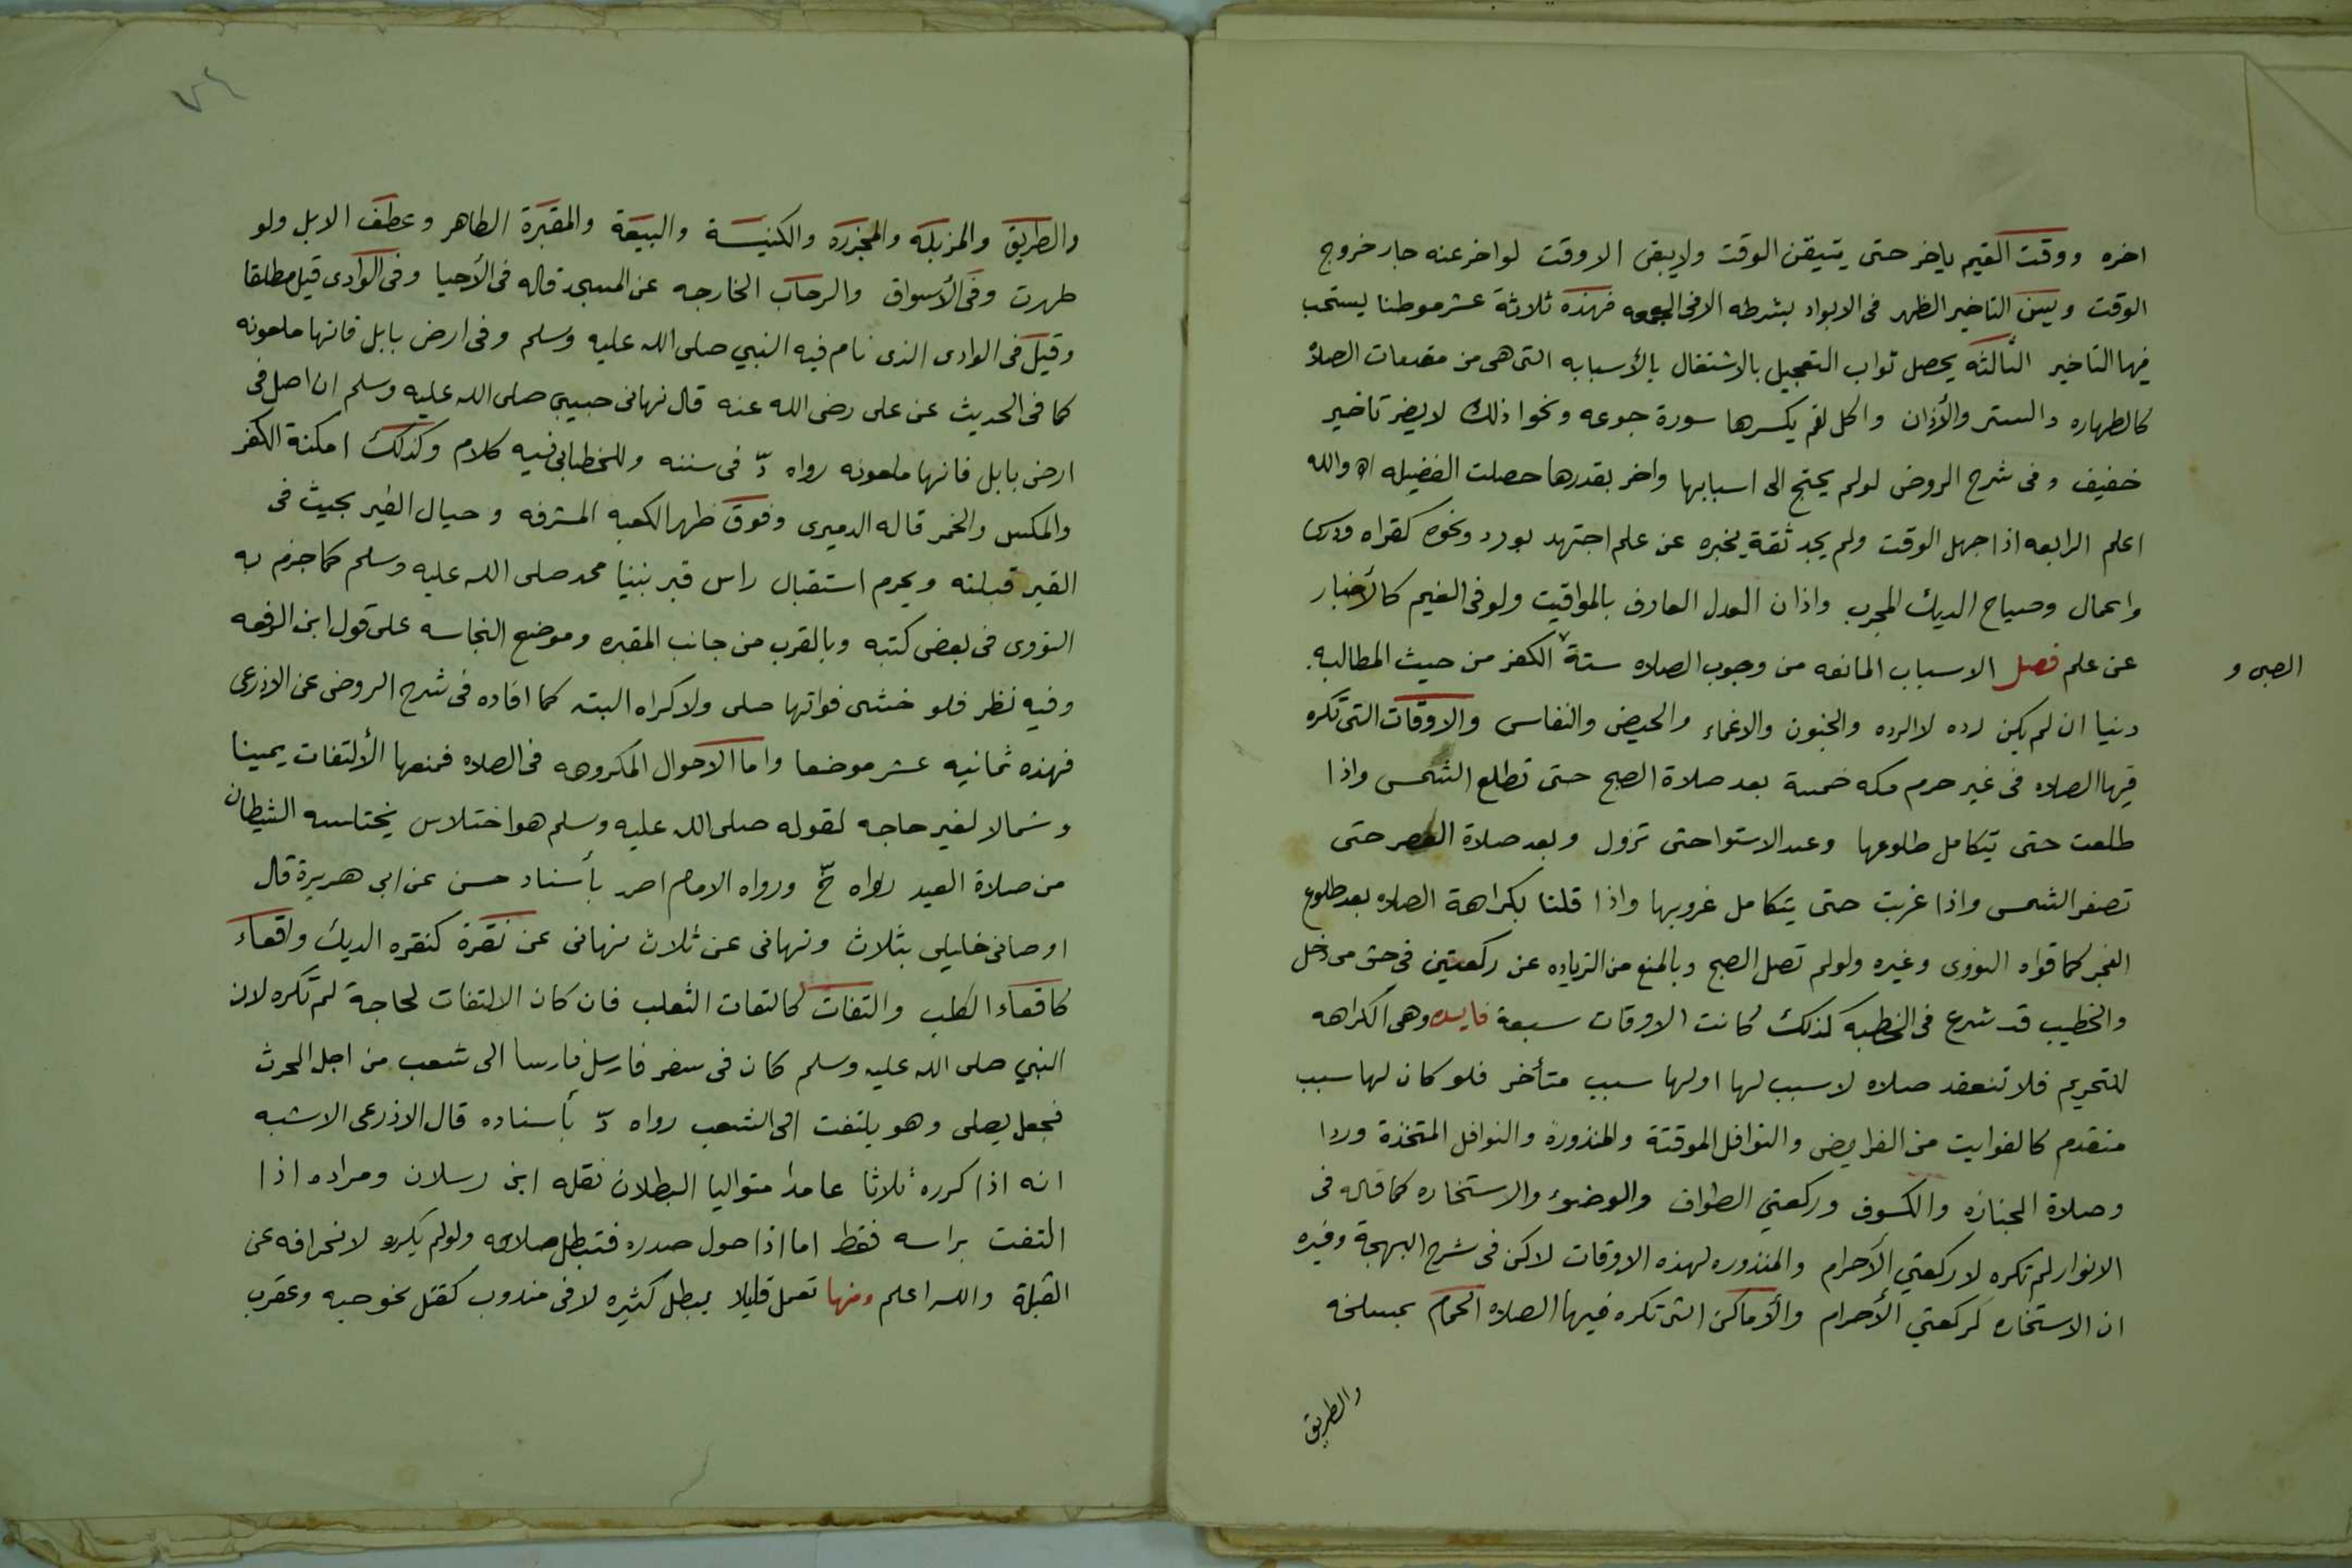 اخره ووقت الغيم ياخر حتى يتيقن الوقت ولا يبقى الا وقت لو اخر عنه جاز خروج
الوقت ويسن التاخير الظهر فى الابراد بشرطه الا فى الجمعه فهذه ثلاثة عشر موطنا يستحب
فيها التاخير الثالثه يحصل ثواب التعجيل بالاشتغال بالأسبابه التى هى من مقدمات الصلاة
كالطهاره والستر والأذان واكل لقم يكسرها سورة جوعه ونحوا ذلك لا يضر تاخير
خفيف وفى شرح الروض لو لم يحتج الى اسبابها واخر بقدرها حصلت الفضيله اه والله
اعلم الرابعه اذا جهل الوقت ولم يجد ثقة يخبره عن علم اجتهد بورد ونحوه كقراه ودرس
واعمال وصياح الديك المجرب واذان العدل العارف بالمواقيت ولو فى الغيم كالأخبار
عن علم فصل الاسباب المانعه من وجوب الصلاه ستة الكفر من حيث المطالبه
الصبى و
دنيا ان لم يكن رده لا الرده والجنون والاغماء والحيض والنفاس والاوقات التى تكره
فيها الصلاه فى غير حرم مكه خمسة بعد صلاة الصبح حتى تطلع الشمس واذا
طلعت حتى يتكامل طلوعها وعند الاستوا حتى تزول وبعد صلاة العصر حتى
تصفر الشمس واذا غربت حتى يتكامل غروبها واذا قلنا بكراهة الصلاه بعد طلوع
الفجر كما قواه النووى وغيره ولو لم تصل الصبح وبالمنع من الزياده عن ركعتين فى حق من دخل
والخطيب قد شرع فى الخطبه كذلك كانت الاوقات سبعة فايده وهى الكراهه
للتحريم فلا تنعقد صلاه لا سبب لها او لها سبب متأخر فلو كان لها سبب
متقدم كالفوايت من الفرايض والنوافل الموقتة والمنذورة والنوافل المتخذة وردا
وصلاة الجنازه والكسوف وركعتي الطواف والوضوء والاستخاره كما قاله فى
الانوار لم تكره لا ركعتي الأحرام والمنذوره لهذه الاوقات لاكن فى شرح البهجة وغيره
ان الاستخاره كركعتي الأحرام والأماكن التى تكره فيها الصلاه الحمام بمسلخه
والطريق
والطريق والمزبله والمجزره والكنيسة والبيعة والمقبرة الطاهر وعطف الابل ولو
طهرت وفى الأسواق والرحاب الخارجه عن المسجد قاله فى الأحيا وفى الوادى قيل مطلقا
وقيل فى الوادى الذى نام فيه النبي صلى الله عليه وسلم وفى ارض بابل فانها ملعونه
كما فى الحديث عن على رضى الله عنه قال نهانى حبيبي صلى الله عليه وسلم ان اصلى فى
ارض بابل فانها ملعونه رواه د فى سننه وللخطابى فيه كلام وكذلك امكنة الكفر
والمكس والخمر قاله الدميرى وفوق ظهر الكعبه المشرفه وحيال القبر بحيث فى
القبر قبلته ويحرم استقبال راس قبر نبينا محمد صلى الله عليه وسلم كما جزم به
النووى فى بعض كتبه وبالقرب من جانب المقبره وموضع النجاسه على قول ابن الرفعه
وفيه نظر فلو خشى فواتها صلى ولا كراه البته كما افاده فى شرح الروض عن الاذرعى
فهذه ثمانيه عشر موضعا واما الاحوال المكروهه فى الصلاه فمنها الألتفات يمينا
وشمالا لغير حاجه لقوله صلى الله عليه وسلم هو اختلاس يختلسه الشيطان
من صلاة العبد رواه خ ورواه الامام احمد بأسناد حسن عن ابى هريرة قال
اوصانى خليلى بثلاث ونهانى عن ثلاث نهانى عن نقرة كنقره الديك واقعاء
كاقعاء الكلب والتفات كالتفات الثعلب فان كان الالتفات لحاجة لم تكره لان
النبي صلى الله عليه وسلم كان فى سفر فارسل فارسا الى شعب من اجل الحرث
فجعل يصلى وهو يلتفت الى الشعب رواه د بأسناده قال الاذرعى الاشبه
انه اذا كرره ثلاثا عامدا متواليا البطلان نقله ابن رسلان ومراده اذا
التفت براسه فقط اما اذا حول صدره فتبطل صلاته ولو لم يكرر لانحرافه عن
القبلة والله اعلم ومنها تعمل قليلا يبطل كثيره لا فى مندوب كقتل نحو حيه وعقرب